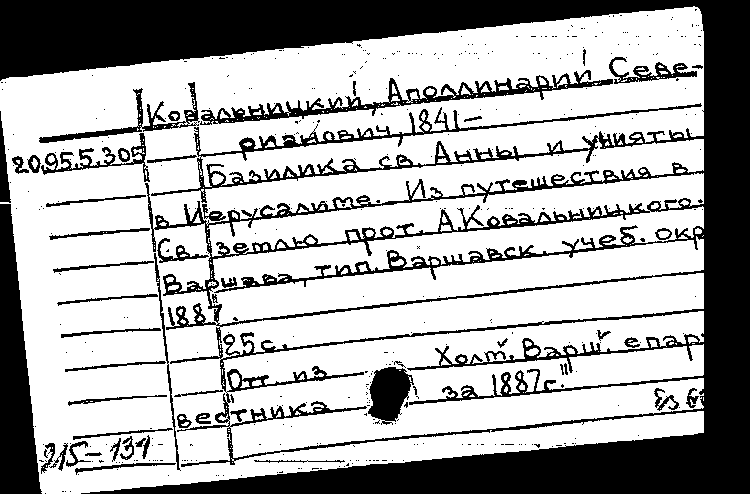 Ковальницкий, Аполлинарий Севе-
рианович, 1841—
20.95.5.305
Базилика св. Анны и униаты
в Иерусалиме. Из путешествия в
Св. землю прот. А. Ковальницкого.
Варшава, тип. Варшавск. учеб. окр
1887.
25 с.
Отт. из Холм. Варш. епар
вестника за 1887г."
215-134